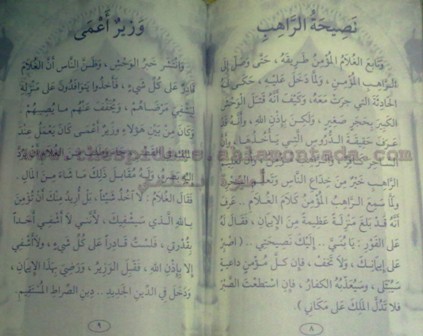 نَصِيحَةُ الرَّاهِبِ
وَتَابَعَ الغُلَامُ المُؤْمِنُ طَرِيقَهُ ، حَتَّى وَصَلَ إِلَى
الرَّاهِبِ المُؤْمِنِ ، وَلَمَّا دَخَلَ عَلَيْهِ ، حَكَى لَهُ
الحَادِثَةَ الَّتِي جَرَتْ مَعَهُ ، وَكَيْفَ أَنَّهُ قَتَلَ الوَحْشَ
الكَبِيرَ بِحَجَرٍ صَغِيرٍ ، وَلَكِنْ بِإِذْنِ اللهِ ،
عَرَفَ حَقِيقَةَ الدُّرُوسِ الَّتِي يَأْخُذُهَا
الرَّاهِبِ خَيْرٌ مِنْ خِدَاعِ النَّاسِ
وَلَمَّا سَمِعَ الرَّاهِبُ المُؤْمِنُ كَلَامَ الغُلَامِ .. عَرَفَ
أَنَّهُ قَدْ بَلَغَ مَنْزِلَةً عَظِيمَةً مِنَ الإِيمَانِ ، فَقَالَ لَهُ
عَلَى الفَوْرِ : يَا بُنَيَّ .. إِلَيْكَ نَصِيحَتِي .. ( اصْبِرْ
عَلَى إِيمَانِكَ .. وَلَا تَخَفْ ، فَإِنَّ كُلَّ مُؤْمِنٍ دَاعِيَةٍ
سَيُبْتَلَى ، وَسَيُعَذِّبُهُ الكُفَّارُ ، فَإِنْ اسْتَطَعْتَ الصَّبْرَ
فَلَا تَدُلَّ المَلِكَ عَلَى مَكَانِي )
٨
وَزِيرٌ أَعْمَى
وَانْتَشَرَ خَبَرُ الوَحْشِ ، وَظَنَّ النَّاسُ أَنَّ الغُلَامَ
قَادِرٌ عَلَى كُلِّ شَيْءٍ ، فَأَخَذُوا يَتَوَافَدُونَ عَلَى مَنْزِلِهِ
لِيَشْفِيَ مَرْضَاهُمْ ، وَيُخَفِّفَ عَنْهُمْ مَا يُصِيبُهُمْ
وَكَانَ مِنْ بَيْنِ هَؤُلَاءِ وَزِيرٌ أَعْمَى كَانَ يَعْمَلُ عِنْدَ
وَلَهُ مُقَابِلَ ذَلِكَ مَا شَاءَ مِنَ المَالِ .
فَقَالَ الغُلَامُ : لَا آخُذُ شَيْئاً ، بَلْ أُرِيدُ مِنْكَ أَنْ تُؤْمِنَ
بِاللهِ الَّذِي سَيَشْفِيكَ ، لِأَنَّنِي لَا أَشْفِي أَحَداً
بِقُدْرَتِي ، فَلَسْتُ قَادِراً عَلَى كُلِّ شَيْءٍ ، وَلَا أَشْفِي
إِلَّا بِإِذْنِ اللهِ ، فَقَبِلَ الوَزِيرُ ، وَرَضِيَ بِهَذَا الإِيمَانِ ،
وَدَخَلَ فِي الدِّينِ الجَدِيدِ .. دِينِ الصِّرَاطِ المُسْتَقِيمِ .
٩